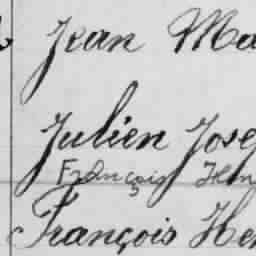 Jean Ma
Julien Jose
François Hen
François Hen